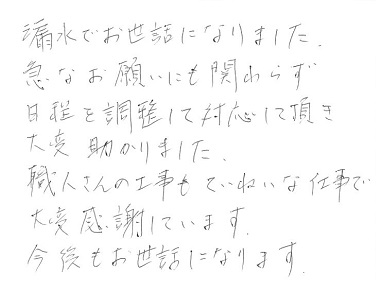 漏水でお世話になりました.
急なお願いにも関わらず
日程を調整して対応して頂き
大変 助かりました.
職人さんの工事もていねいな仕事で
大変感謝しています.
今後もお世話になります.